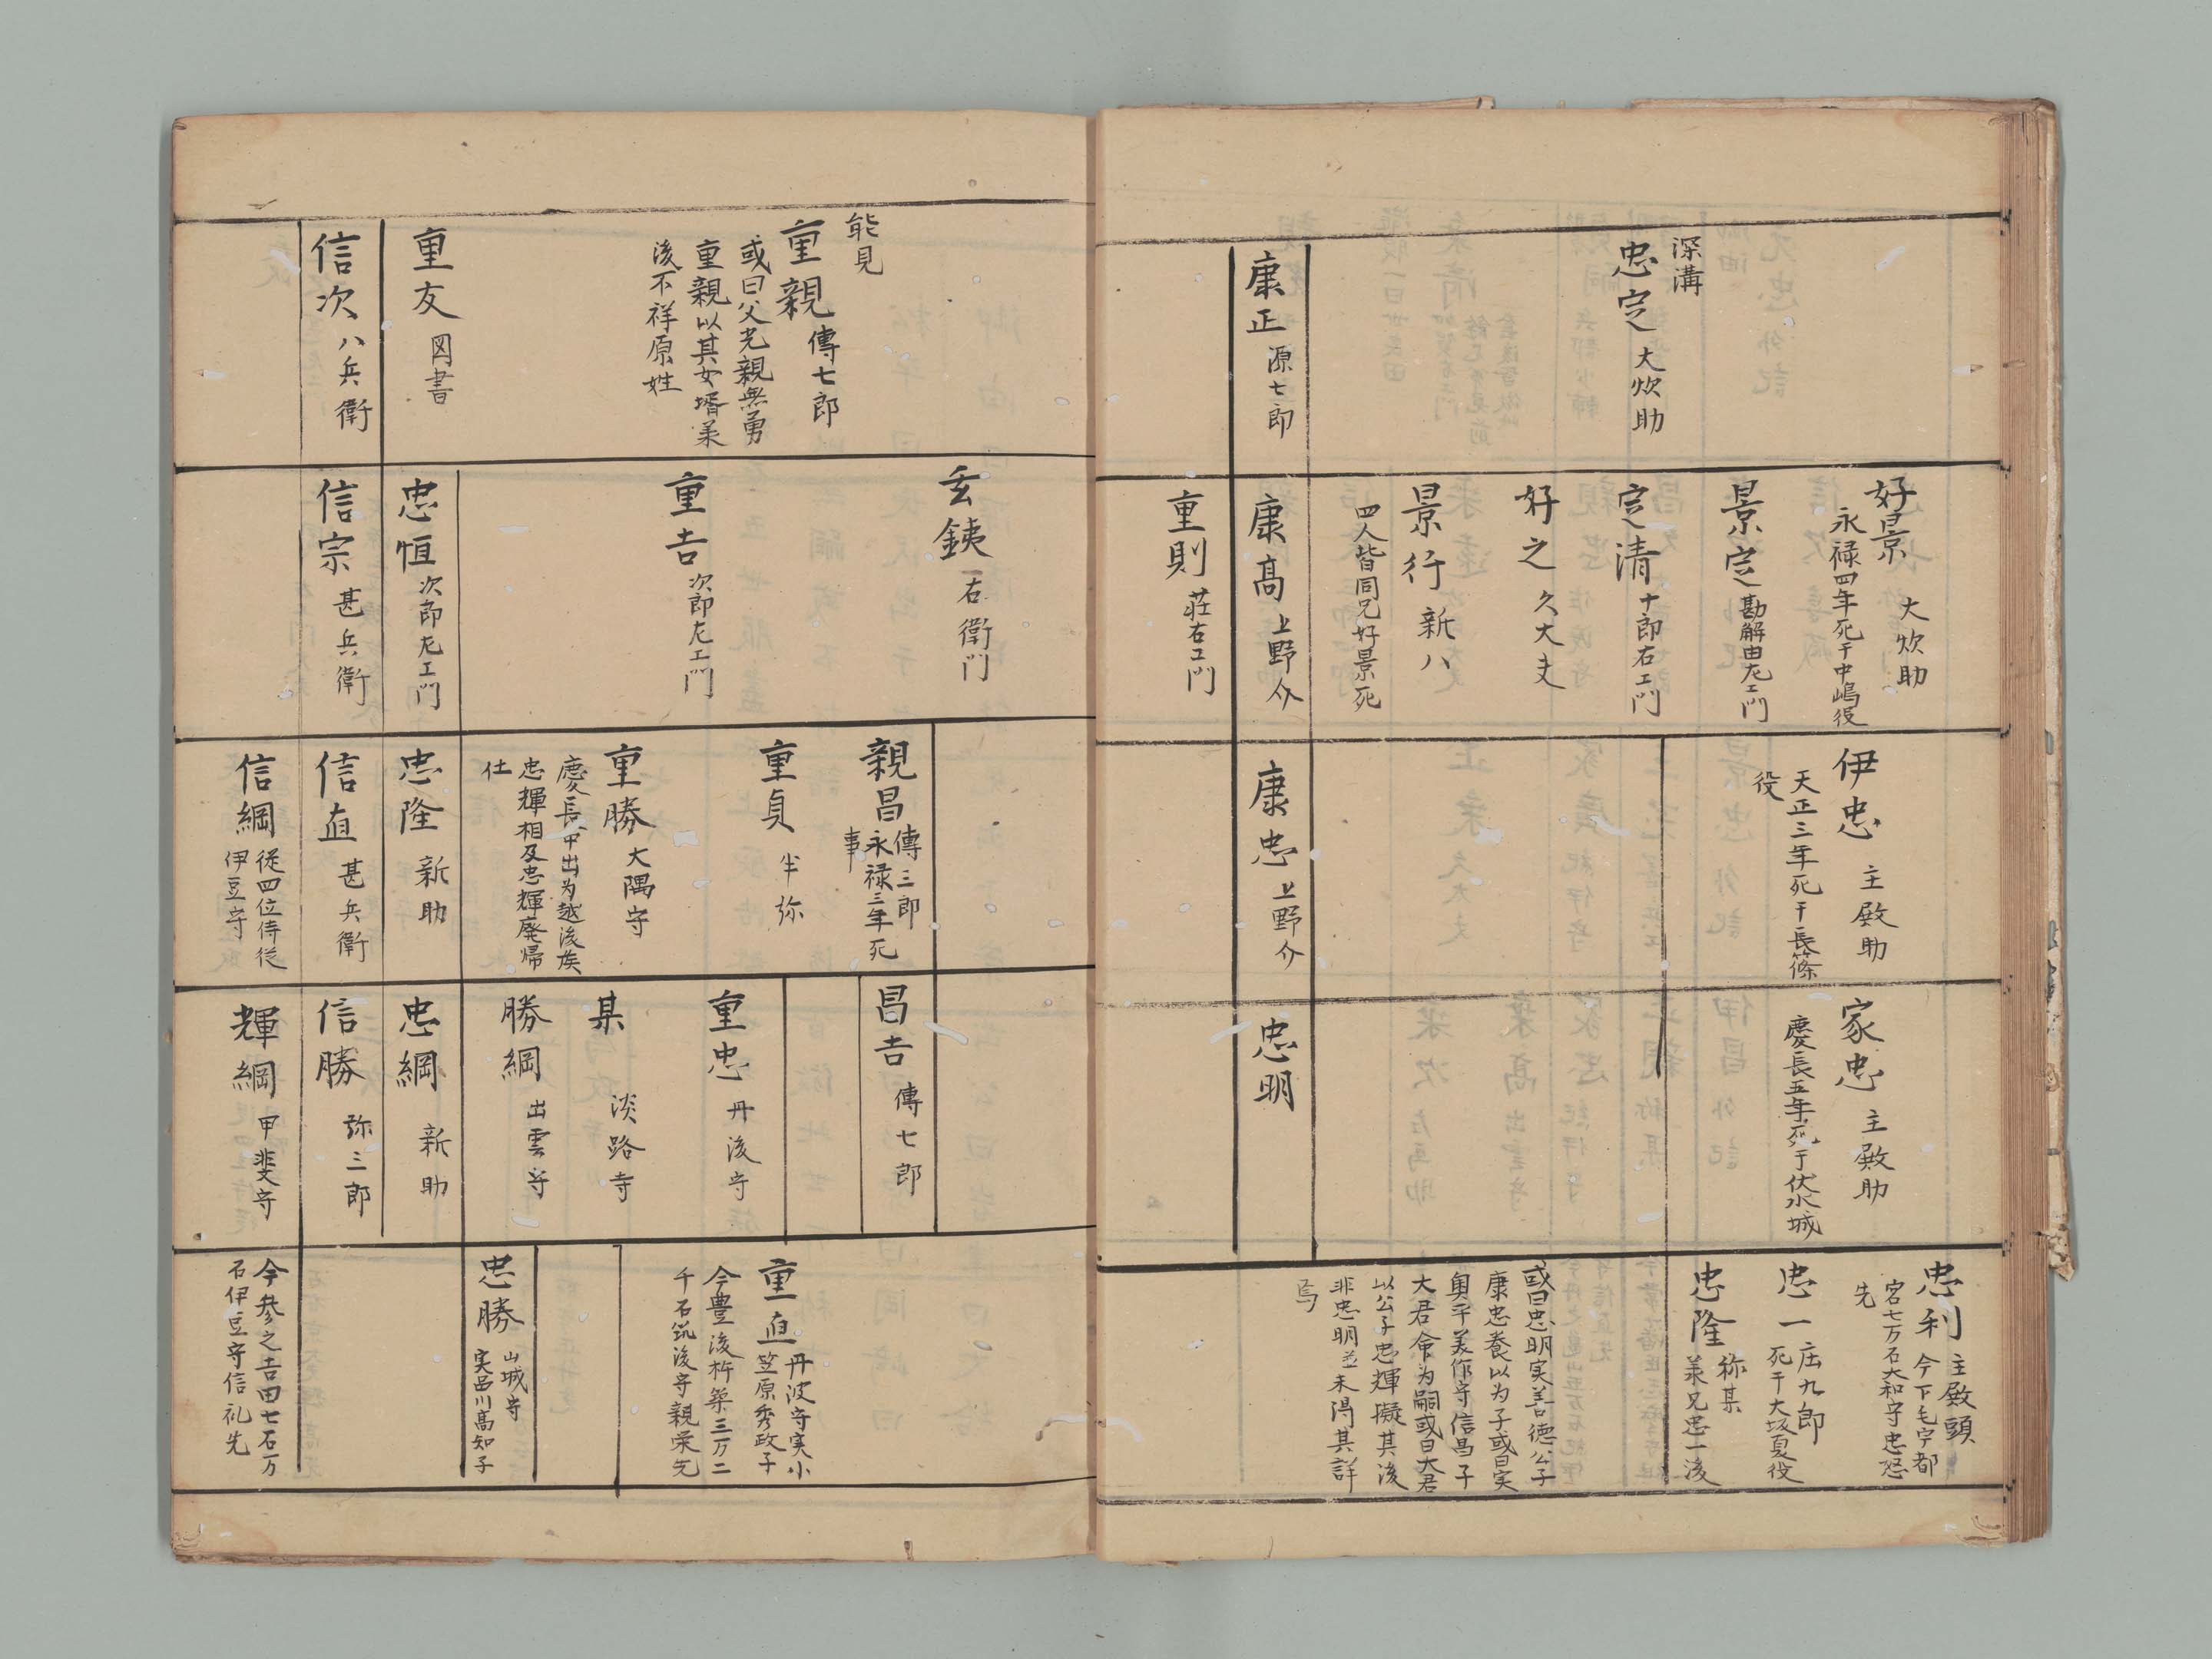 深溝
忠定 大炊助
康正 源七郎
好景 大炊助
永禄四年死于中嶋役
景定 勘解由左エ門
定清 十郎右エ門
好之 久大夫
景行 新八
四人皆同兄好景死
康高 上野介
重則 荘右エ門
伊忠 主殿助
天正三年死于長篠
役
康忠 上野介
家忠 主殿助
慶長五年死于伏水城
忠明
忠利 主殿頭
今下毛宇都
宮七万石大和守忠恕
先
忠一 庄九郎
死于大坂夏役
忠隆 称某
兼兄忠一後
或曰忠明実善徳公子
康忠養以为子或曰実
奥平美作守信昌子
大君命为嗣或曰大君
以公子忠輝擬其後
非忠明並未得其詳
焉
能見
重親 傳七郎
或曰父光親無勇
重親以其女壻兼
後不祥原姓
重友 図書
信次 八兵衛
玄銕 右衛門
重吉 次郎左エ門
忠恒 次郎左エ門
信宗 甚兵衛
親昌 傳三郎
永禄三年死
事
重貞 半弥
重勝 大隅守
慶長中出为越後侯
忠輝相及忠輝廃帰
仕
忠隆 新助
信直 甚兵衛
信綱 従四位侍従
伊豆守
昌吉 傳七郎
重忠 丹後守
某 淡路守
勝綱 出雲守
忠綱 新助
信勝 弥三郎
輝綱 甲斐守
重直 丹波守実小
笠原秀政子
今豊後杵築三万二
千石筑後守親栄先
忠勝 山城守
実品川高如子
今参之吉田七石万
石伊豆守信礼先